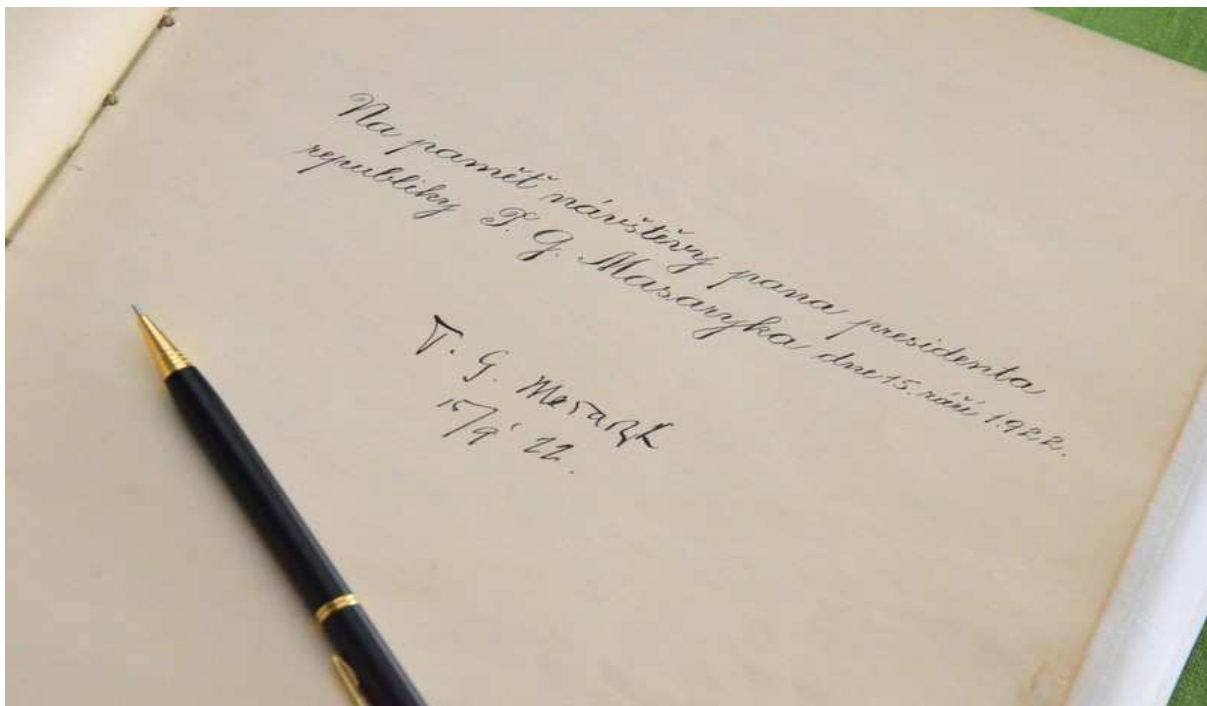 Na paměť návštěvy pana presidenta
republiky T. G. Masaryka dne 15. září 1922.
T. G. Masaryk
15/9 22.